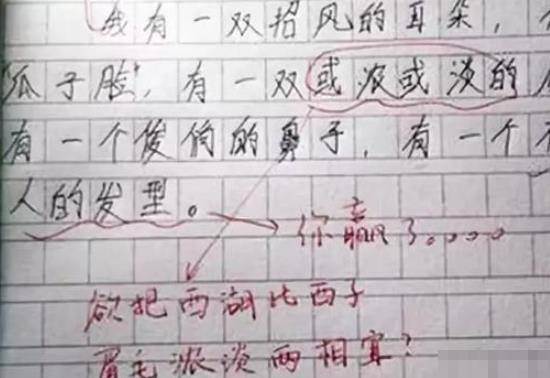 我有一双招风的耳朵，
瓜子脸，有一双或浓或淡的
有一个俊俏的鼻子，有一个
人的发型。
你赢了。。。。
欲把西湖比西子
眉毛浓淡两相宜？